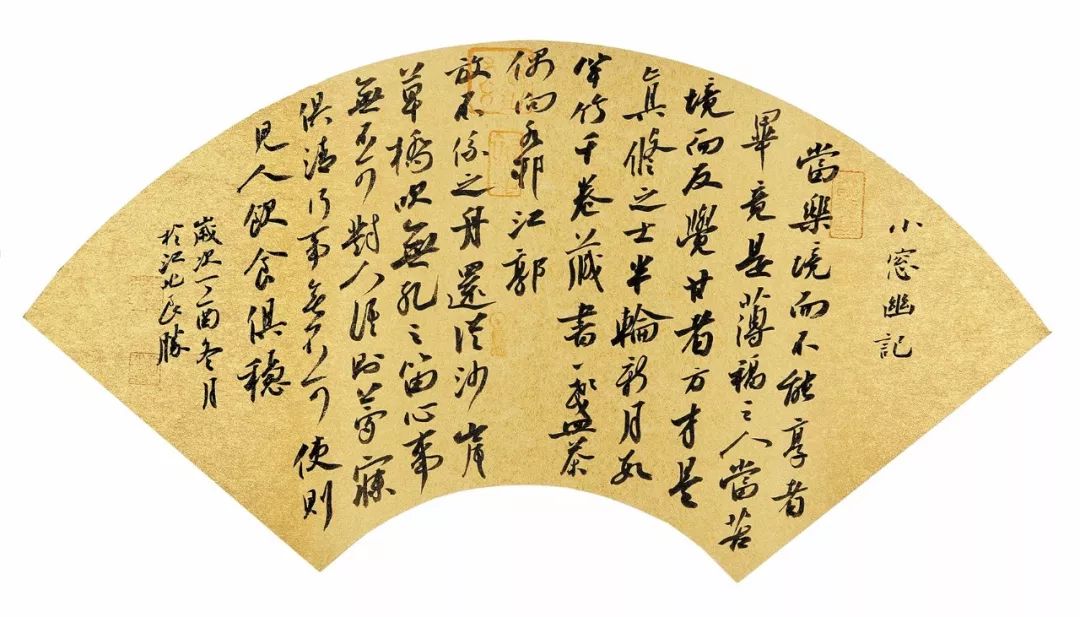 小窓幽記
當樂境而不能享者
畢竟是薄福之人當苦
境而反覺甘者方才是
真修之士半輪新月数
竿竹千卷藏書一盞茶
偶向水邨江郭
放不係之舟還從沙岸
草橋吹無孔之笛心事
無不可對人語則夢寐
俱清行事無不可使則
見人飲食俱穩
歲次丁酉冬月
於江北勝